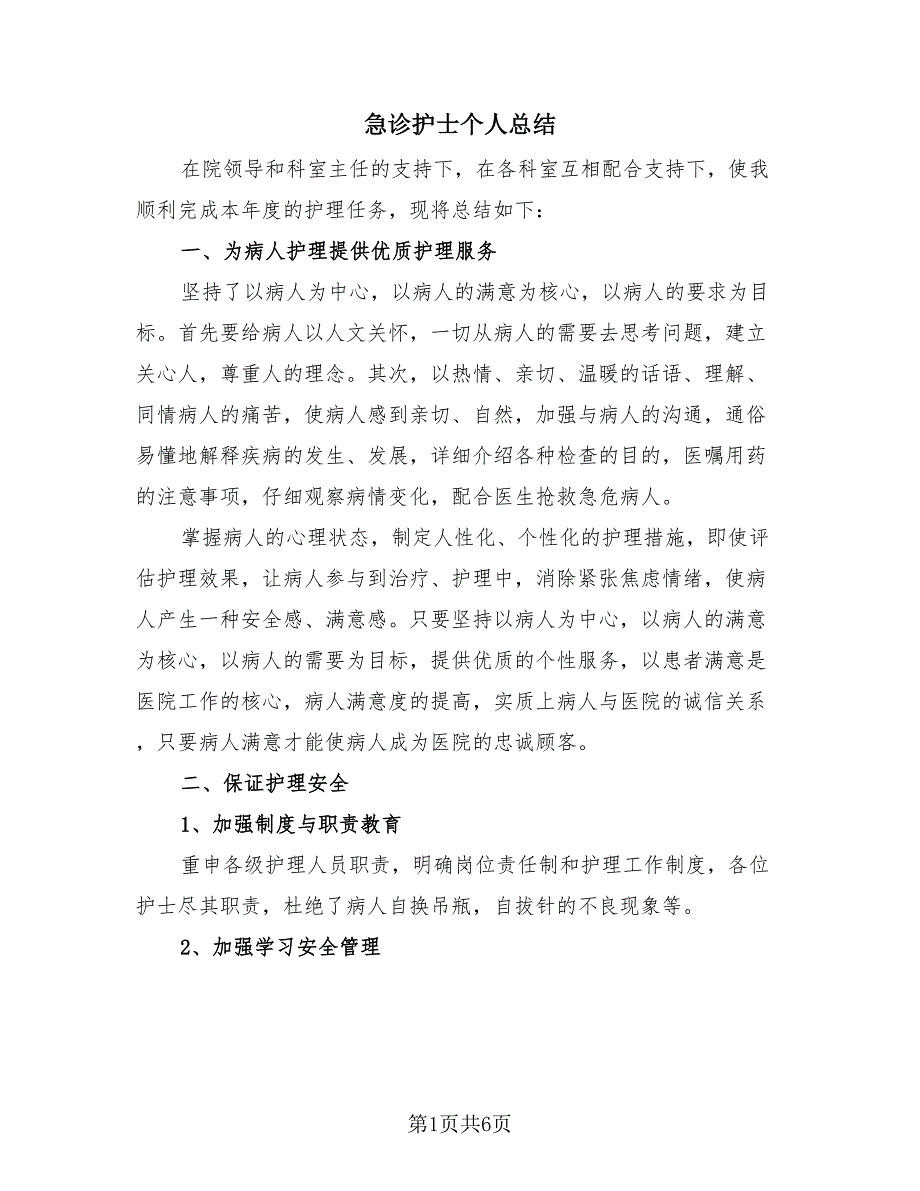 急诊护士个人总结
在院领导和科室主任的支持下，在各科室互相配合支持下，使我
顺利完成本年度的护理任务，现将总结如下：
一、为病人护理提供优质护理服务
坚持了以病人为中心，以病人的满意为核心，以病人的要求为目
标。首先要给病人以人文关怀，一切从病人的需要去思考问题，建立
关心人，尊重人的理念。其次，以热情、亲切、温暖的话语、理解、
同情病人的痛苦，使病人感到亲切、自然，加强与病人的沟通，通俗
易懂地解释疾病的发生、发展，详细介绍各种检查的目的，医嘱用药
的注意事项，仔细观察病情变化，配合医生抢救急危病人。
掌握病人的心理状态，制定人性化、个性化的护理措施，即使评
估护理效果，让病人参与到治疗、护理中，消除紧张焦虑情绪，使病
人产生一种安全感、满意感。只要坚持以病人为中心，以病人的满意
为核心，以病人的需要为目标，提供优质的个性服务，以患者满意是
医院工作的核心，病人满意度的提高，实质上病人与医院的诚信关系
，只要病人满意才能使病人成为医院的忠诚顾客。
二、保证护理安全
1、加强制度与职责教育
重申各级护理人员职责，明确岗位责任制和护理工作制度，各位
护士尽其职责，杜绝了病人自换吊瓶，自拔针的不良现象等。
2、加强学习安全管理
第1页共6页